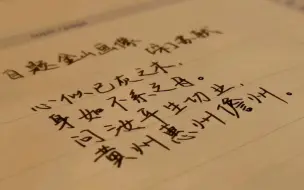 自题金山画像 宋 苏轼
心似已灰之木,
身如不系之舟。
问汝平生功业,
黄州惠州儋州。